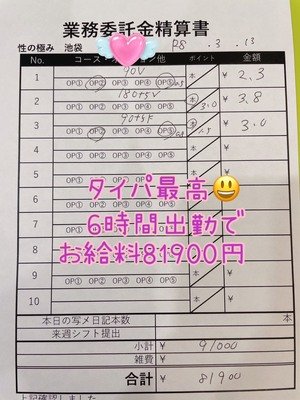 業務委託金精算書
性の極み 池袋
R8 . 3 . 13
No. コース 他 ポイント 金額
1 90V OP① OP② OP③ OP④ OP⑤ 本 ¥ 2.3
2 180+5V OP① OP② OP③ OP④ OP⑤ 本 3.0 ¥ 3.8
3 OP① OP② OP③ OP④ OP⑤ 本 1.5 ¥ 3.0
4 OP① OP② OP③ OP④ OP⑤ 本 ¥
5 本 ¥
タイパ最高😃
6時間出勤で
お給料81900円
9 OP① OP② OP③ OP④ OP⑤ 本 ¥
10 OP① OP② OP③ OP④ OP⑤ 本 ¥
本日の写メ日記本数
来週シフト提出
小計 ¥ 91000
雑費 ¥
合計 ¥ 81900
上記確認しました